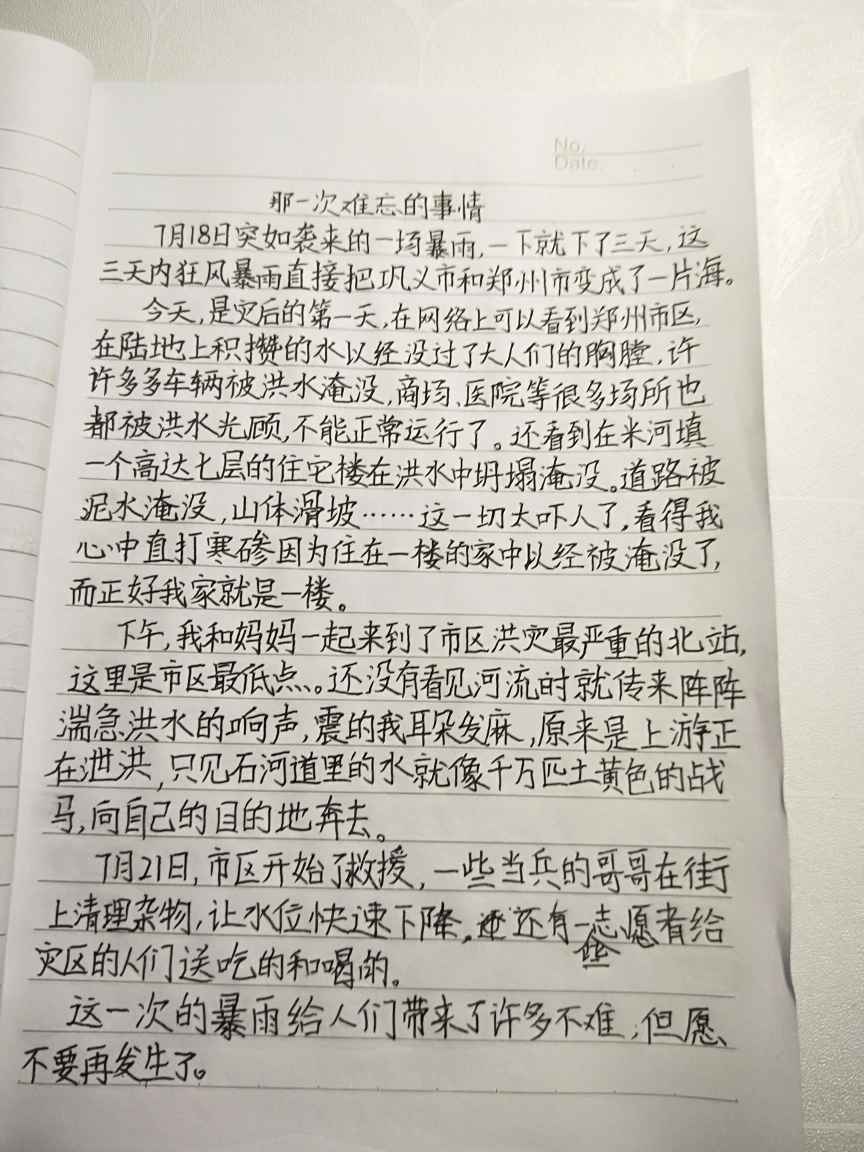 No.
Date.
那一次难忘的事情
7月18日突如袭来的一场暴雨,一下就下了三天,这
三天内狂风暴雨直接把巩义市和郑州市变成了一片海。
今天,是灾后的第一天,在网络上可以看到郑州市区,
在陆地上积攒的水以经没过了大人们的胸膛,许
许多多车辆被洪水淹没,商场、医院等很多场所也
都被洪水光顾,不能正常运行了。还看到在米河填
一个高达七层的住宅楼在洪水中坍塌淹没。道路被
泥水淹没,山体滑坡……这一切太吓人了,看得我
心中直打寒碜因为住在一楼的家中以经被淹没了,
而正好我家就是一楼。
下午,我和妈妈一起来到了市区洪灾最严重的北站,
这里是市区最低点、。还没有看见河流时就传来阵阵
湍急洪水的响声,震的我耳朵发麻,原来是上游正
在泄洪,只见石河道里的水就像千万匹土黄色的战
马,向自己的目的地奔去。
7月21日,市区开始了救援,一些当兵的哥哥在街
上清理杂物,让水位快速下降。还有一些志愿者给
灾区的人们送吃的和喝的。
这一次的暴雨给人们带来了许多不难,但愿
不要再发生了。